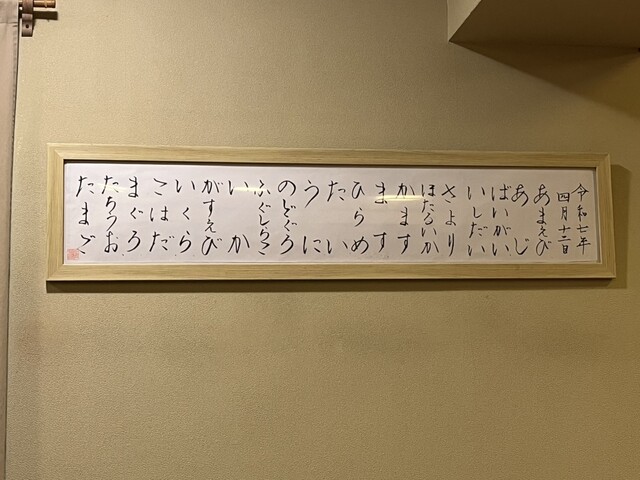 令和七年
四月十二日
あまえび
あじ
ばいがい
いしだい
さより
ほたるいか
かます
ます
ひらめ
たい
うに
のどぐろ
ふぐしらこ
いか
がすえび
いくら
こはだ
まぐろ
たちうお
たまご